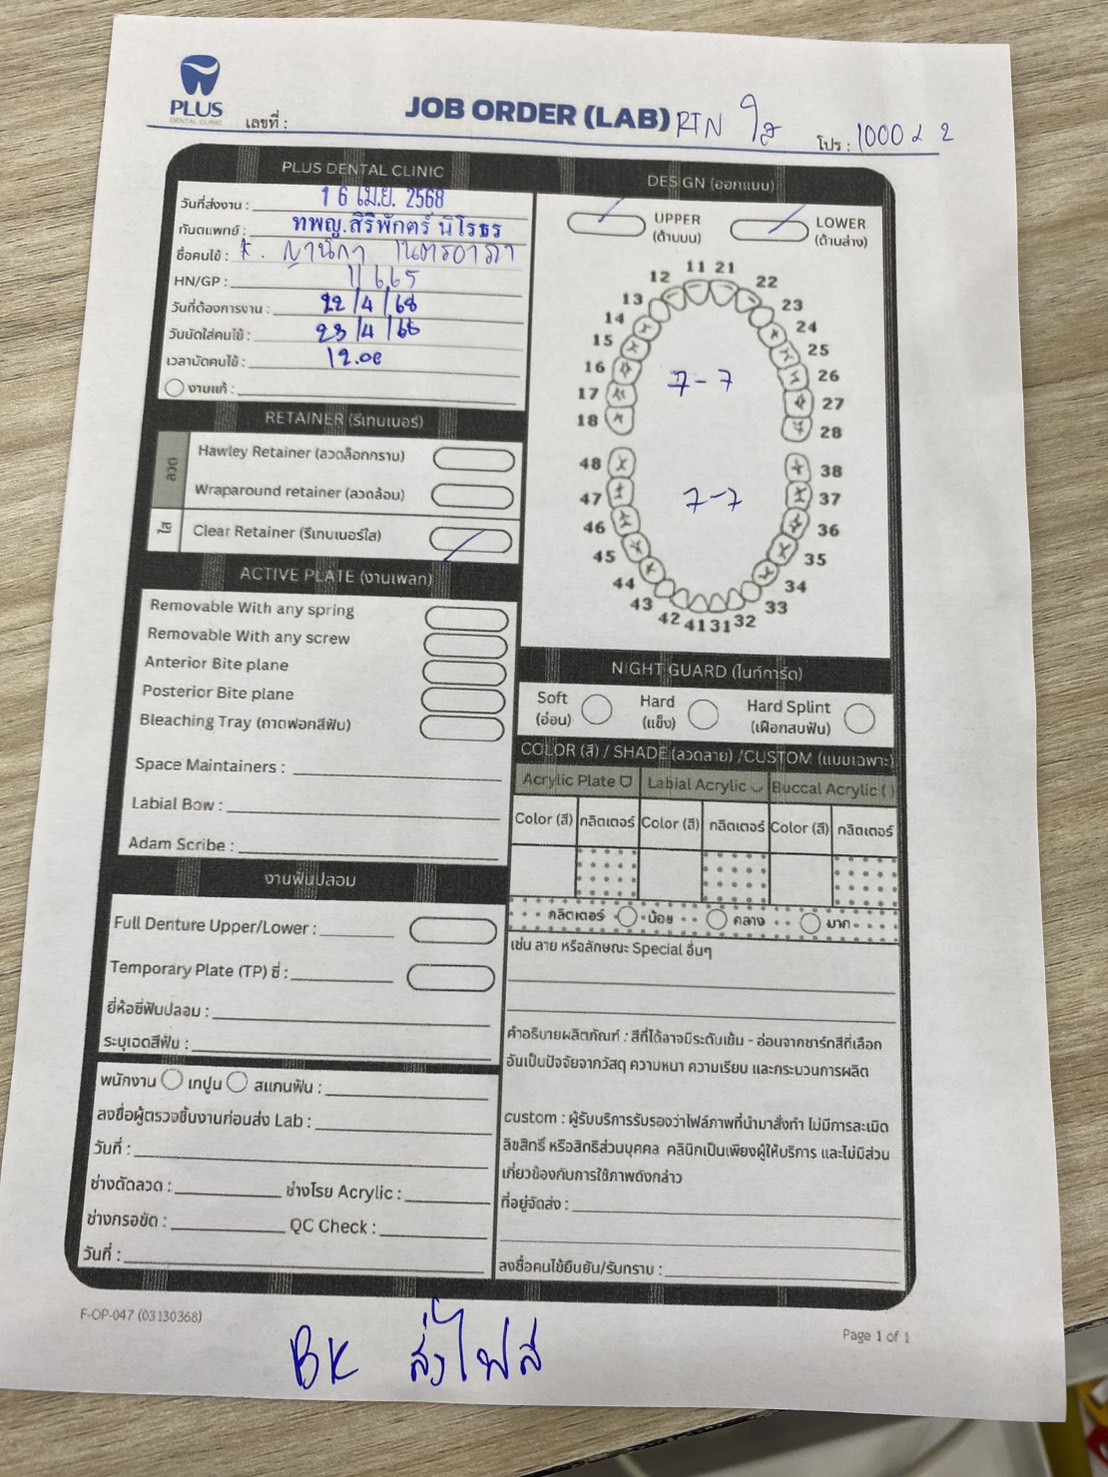 PLUS
DENTAL CLINIC
เลขที่ :
JOB ORDER (LAB) RTN ใส
โปร : 1000 x 2
PLUS DENTAL CLINIC
วันที่ส่งงาน : 16 เม.ย. 2568
ทันตแพทย์ : ทพญ.สิริพักตร์ นิโรธร
ชื่อคนไข้ :
HN/GP : 11665
วันที่ต้องการงาน : 22/4/68
วันนัดใส่คนไข้ : 23/4/68
เวลานัดคนไข้ : 12.00
งานแก้ :
RETAINER (รีเทนเนอร์)
ลวด
Hawley Retainer (ลวดล็อกกราบ)
Wraparound retainer (ลวดล้อม)
ใส
Clear Retainer (รีเทนเนอร์ใส)
ACTIVE PLATE (งานเพลท)
Removable With any spring
Removable With any screw
Anterior Bite plane
Posterior Bite plane
Bleaching Tray (ถาดฟอกสีฟัน)
Space Maintainers :
Labial Bow :
Adam Scribe :
งานฟันปลอม
Full Denture Upper/Lower :
Temporary Plate (TP) ซี่ :
ยี่ห้อซี่ฟันปลอม :
ระบุเฉดสีฟัน :
พนักงาน เทปูน สแกนฟัน :
ลงชื่อผู้ตรวจชิ้นงานก่อนส่ง Lab :
วันที่ :
ช่างดัดลวด : ช่างโรย Acrylic :
ช่างกรอขัด : QC Check :
วันที่ :
DESIGN (ออกแบบ)
UPPER
(ด้านบน)
LOWER
(ด้านล่าง)
11 21
12 22
13 23
14 24
15 25
16 26
7-7
17 27
18 28
48 38
47 37
7-7
46 36
45 35
44 34
43 33
42 41 31 32
NIGHT GUARD (ไนท์การ์ด)
Soft
(อ่อน)
Hard
(แข็ง)
Hard Splint
(เฝือกสบฟัน)
COLOR (สี) / SHADE (ลวดลาย) /CUSTOM (แบบเฉพาะ)
Acrylic Plate Labial Acrylic Buccal Acrylic ( )
Color (สี) กลิตเตอร์ Color (สี) กลิตเตอร์ Color (สี) กลิตเตอร์
กลิตเตอร์ น้อย กลาง มาก
เช่น ลาย หรือลักษณะ Special อื่นๆ
คำอธิบายผลิตภัณฑ์ : สีที่ได้อาจมีระดับเข้ม - อ่อนจากชาร์ทสีที่เลือก
อันเป็นปัจจัยจากวัสดุ ความหนา ความเรียบ และกระบวนการผลิต
custom : ผู้รับบริการรับรองว่าไฟล์ภาพที่นำมาสั่งทำ ไม่มีการละเมิด
ลิขสิทธิ์ หรือสิทธิส่วนบุคคล คลินิกเป็นเพียงผู้ให้บริการ และไม่มีส่วน
เกี่ยวข้องกับการใช้ภาพดังกล่าว
ที่อยู่จัดส่ง :
ลงชื่อคนไข้ยืนยัน/รับทราบ :
F-OP-047 (03130368)
Page 1 of 1
BK ส่งไฟล์